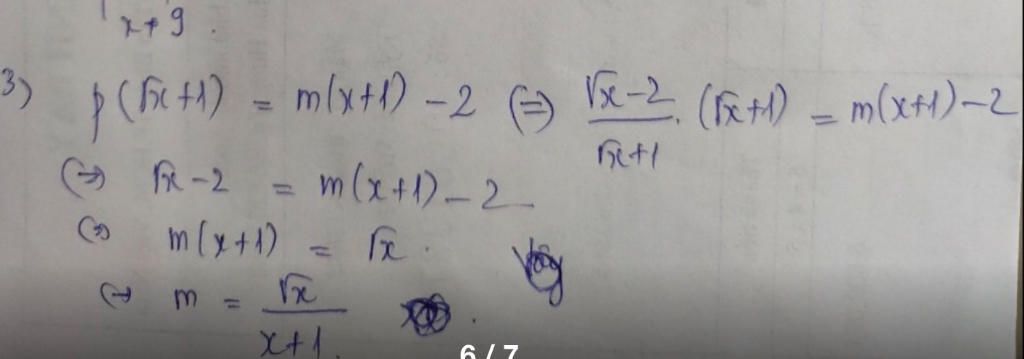 x+9.
3) p(√x+1) = m(x+1) - 2 (=) √x-2/√x+1 . (√x+1) = m(x+1)-2
(=) √x-2 = m(x+1) - 2
(=) m(x+1) = √x.
(=) m = √x/x+1.
6 / 7